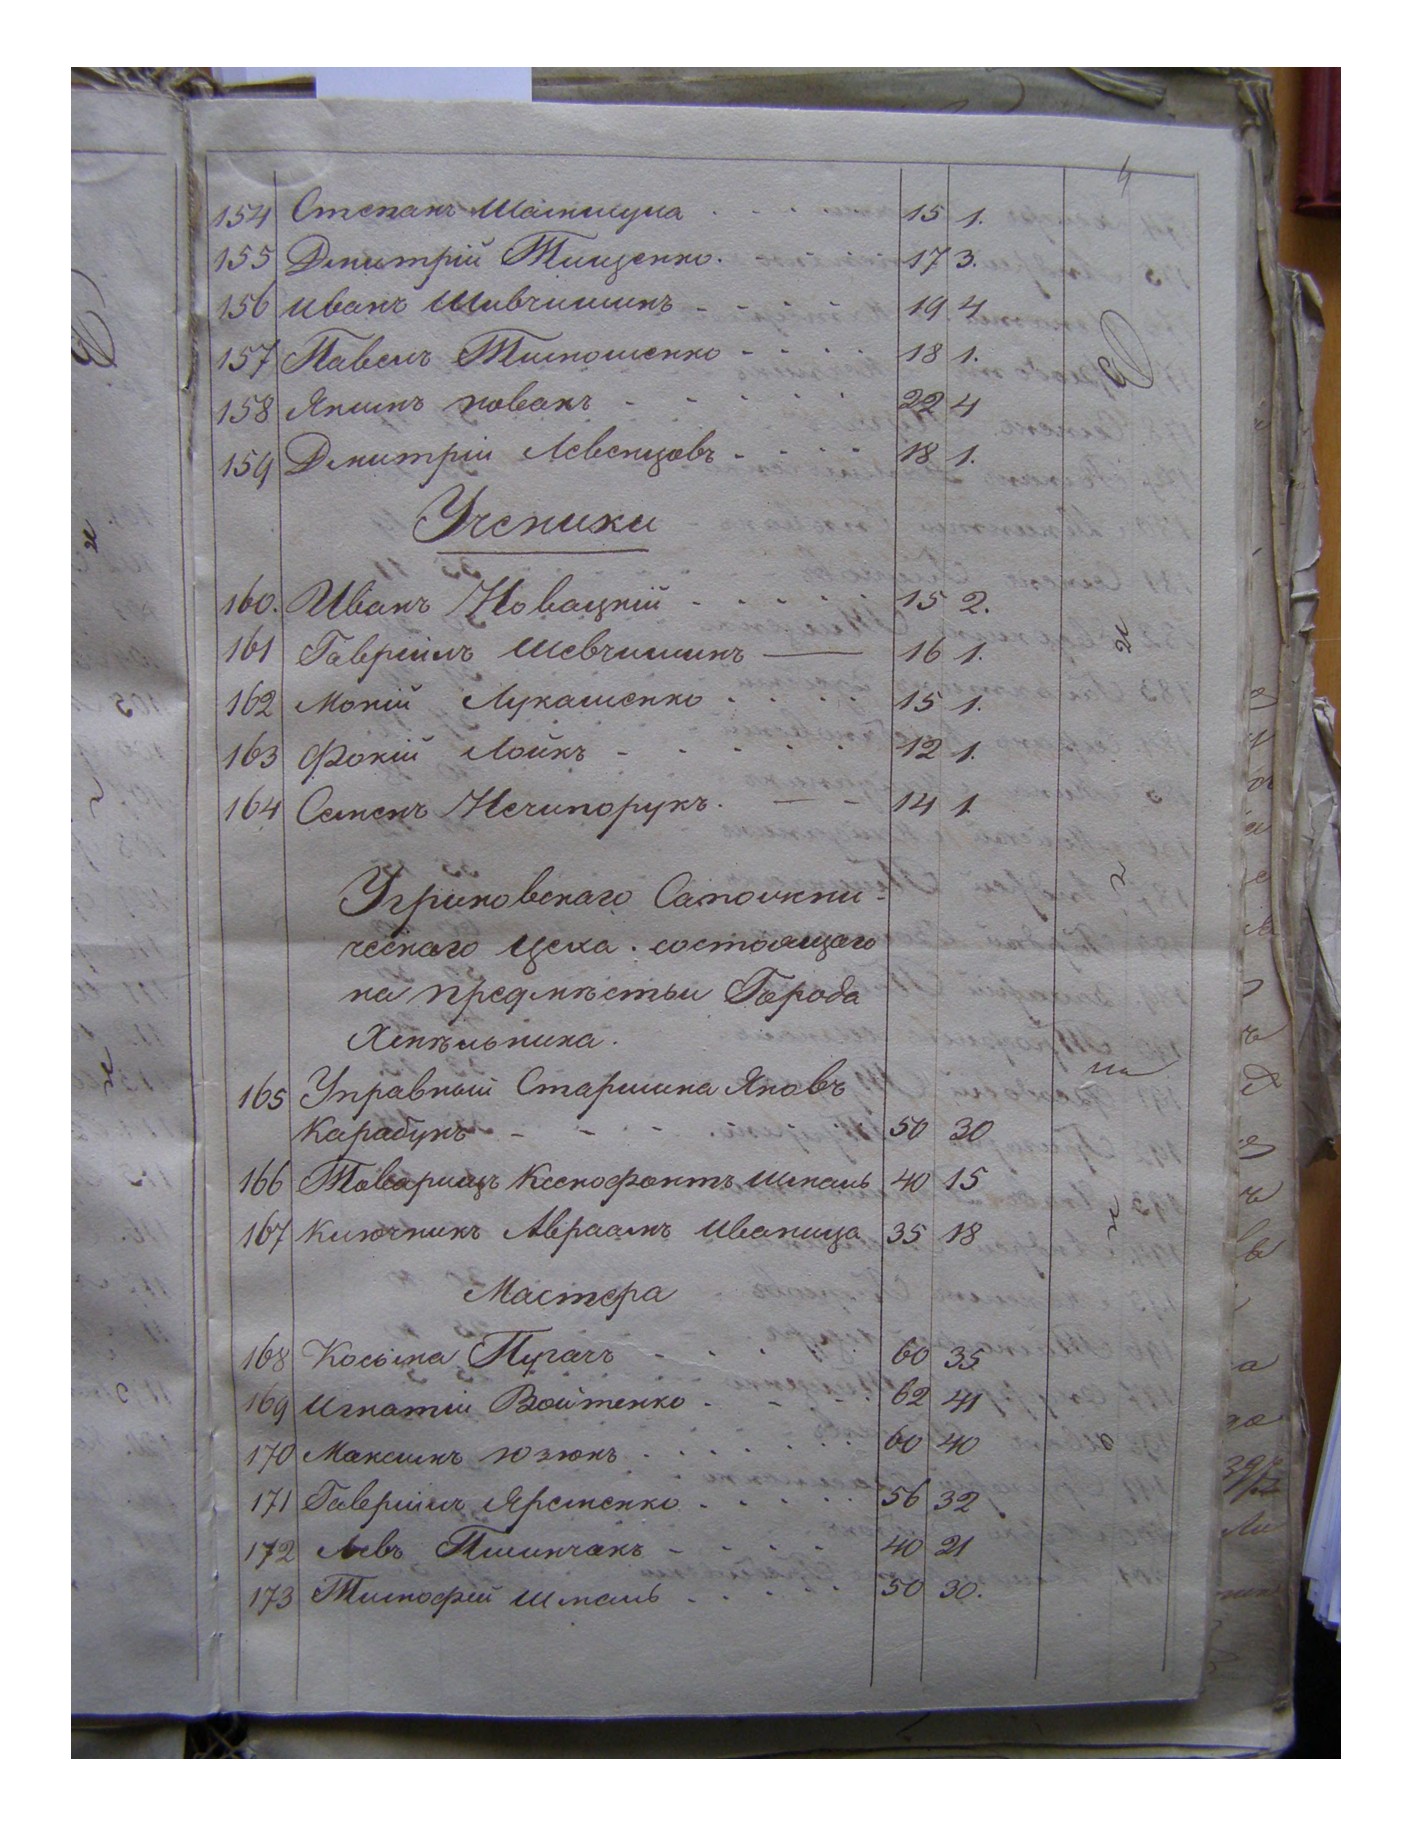 4
154 Степанъ Шаткшула 15 1.
155 Дмитрій Тищенко. 17 3.
156 Иванъ Шивчишинъ 19 4
157 Павелъ Тимошенко 18 1.
158 Якимъ новакъ 22 4
159 Дмитрій Левенцовъ 18 1.
Ученики
160. Иванъ Новацкій 15 2.
161 Гавріилъ Шевчишинъ 16 1.
162 Мокій Лукашенко 15 1.
163 Фокій Лойкъ 12 1.
164 Семенъ Нечипорукъ. 14 1.
Угриновскаго Сапожни-
ческаго цеха. состоящаго
на предмѣстьи Города
Хмѣльника.
165 Управный Старшина Яковъ
Карабунъ 50 30
166 Товарищъ Ксенофонтъ Шмаль 40 15
167 Ключникъ Авраамъ Иваница 35 18
Мастера
168 Косьма Пугачъ 60 35
169 Игнатій Войтенко 62 41
170 Максимъ Юзюкъ 60 40
171 Гавріилъ Яременко 56 32
172 Левъ Плинчакъ 40 21
173 Тимофей Шмаль 50 30.